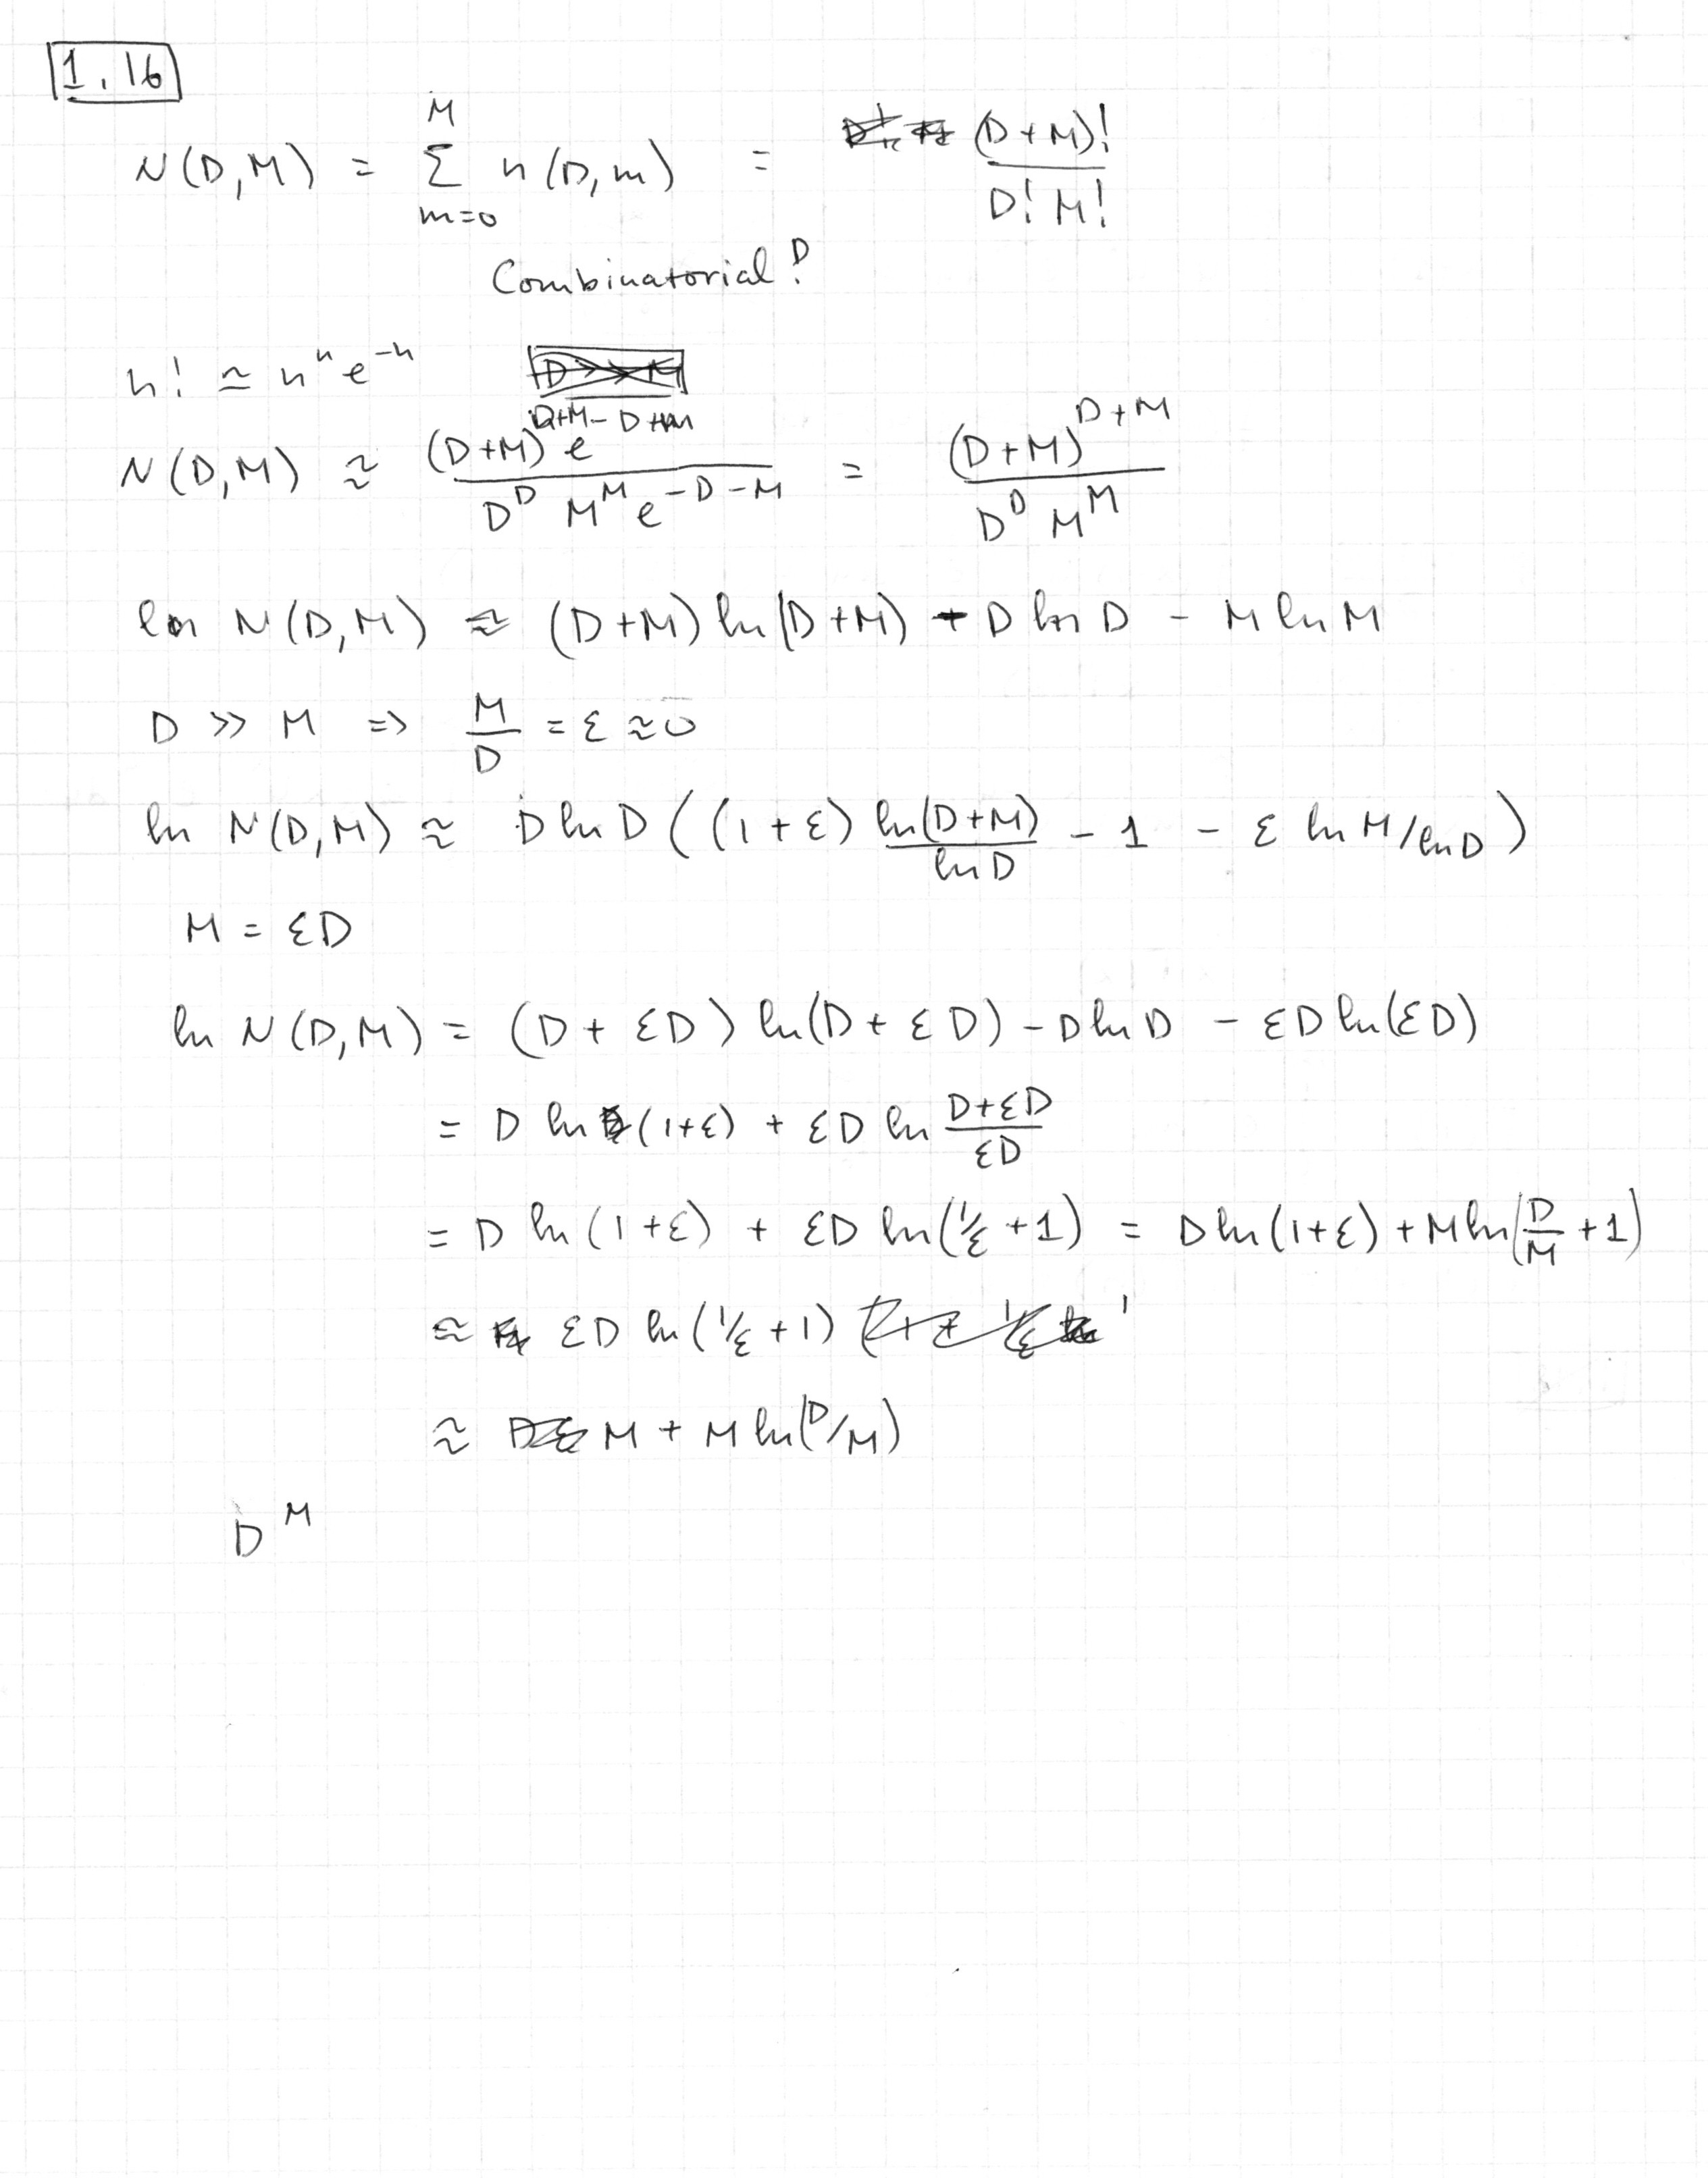 1.16
N(D,M) = M Σ m=0 n(D,m) = (D+M)! / D! M!
Combinatorial?
n! ≃ n^n e^-n
N(D,M) ≈ (D+M)^D+M e^-D+M / D^D M^M e^-D-M = (D+M)^D+M / D^D M^M
ln N(D,M) ≈ (D+M) ln(D+M) - D ln D - M ln M
D >> M => M/D = ε ≈ 0
ln N(D,M) ≈ D ln D ((1+ε) ln(D+M)/ln D - 1 - ε ln M/ln D)
M = εD
ln N(D,M) = (D + εD) ln(D + εD) - D ln D - εD ln(εD)
= D ln (1+ε) + εD ln D+εD/εD
= D ln (1+ε) + εD ln(1/ε +1) = D ln(1+ε) + M ln(D/M +1)
≈ εD ln(1/ε +1)
≈ M + M ln(D/M)
D^M